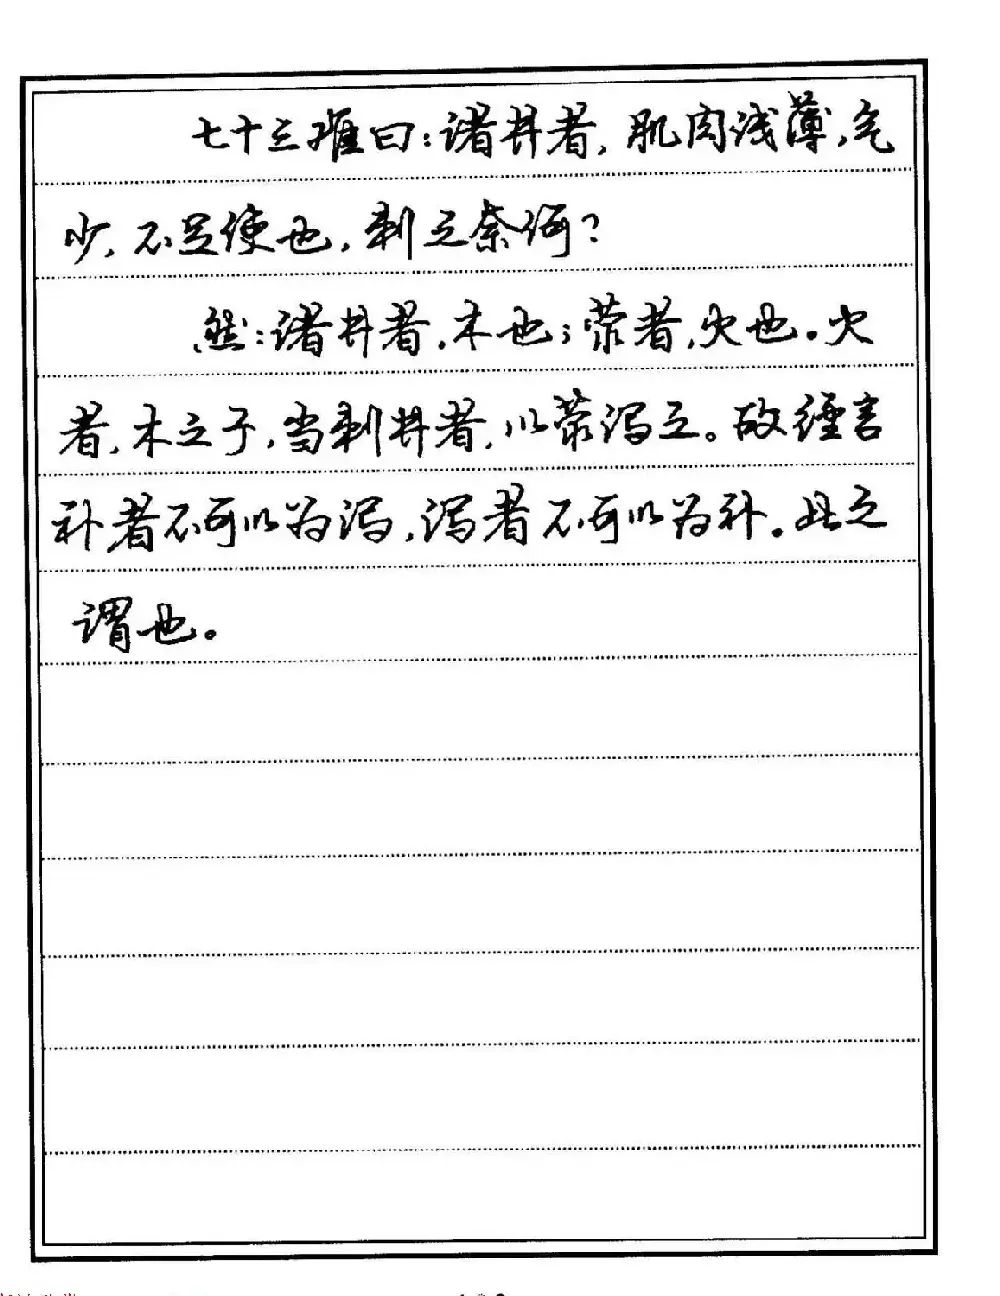 七十三难曰：诸井者，肌肉浅薄，气
少，不足使也，刺之奈何？
然：诸井者，木也；荥者，火也。火
者，木之子，当刺井者，以荥泻之。故经言
补者不可以为泻，泻者不可以为补。此之
谓也。